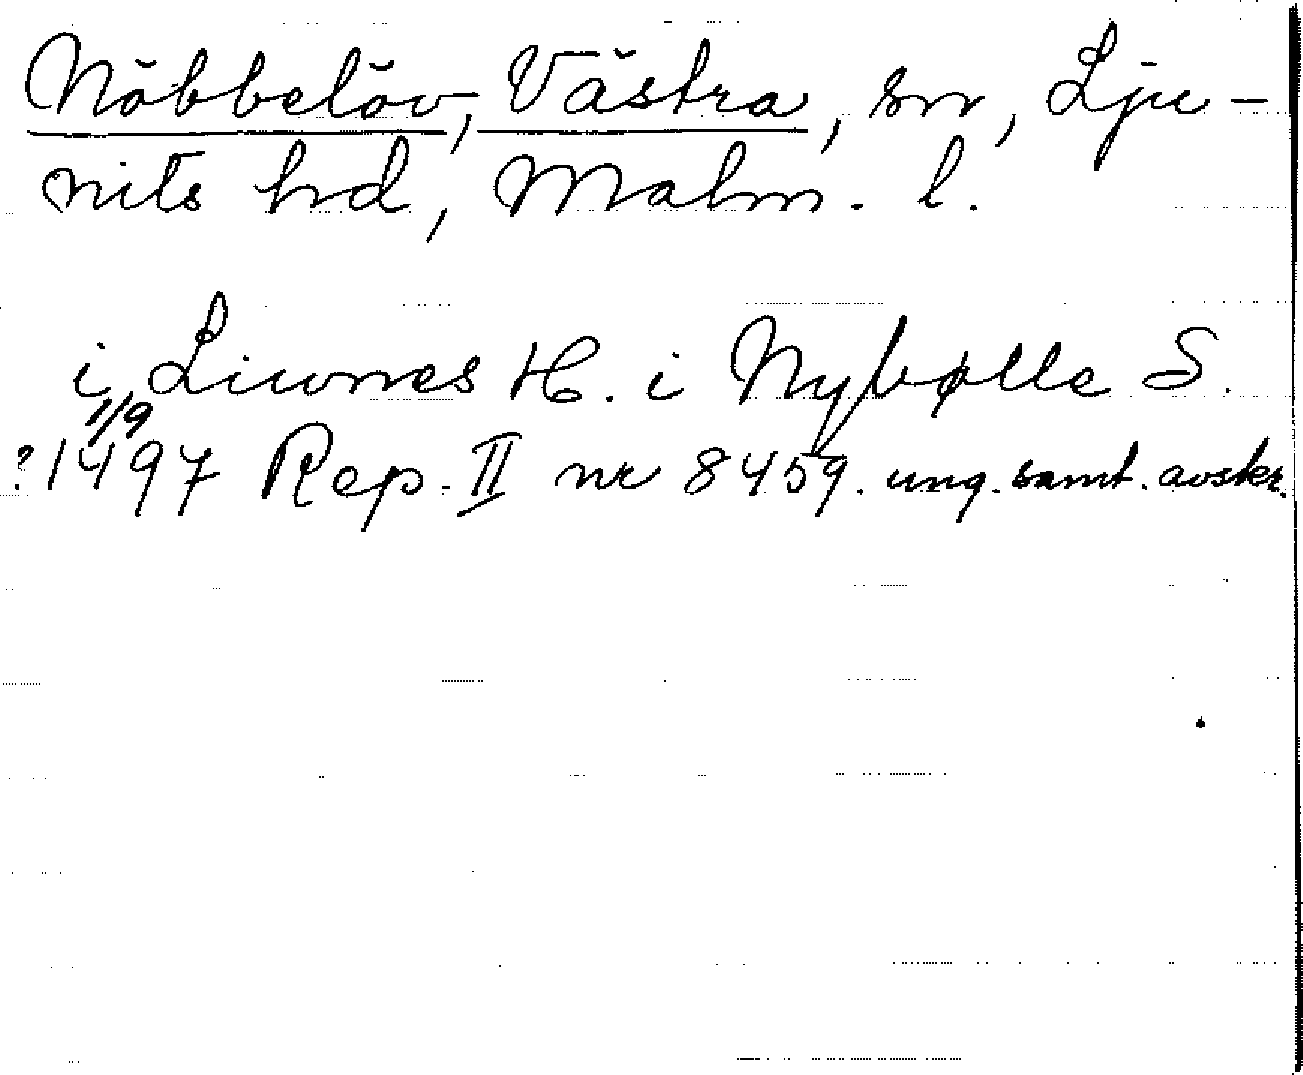 Nöbbelöv, Västra, sn, Lju-
nits hd, Malm. l.
i Liwnes H. i Nybølle S.
1/9
?1497 Rep. II nr 8459. ung. samt. avskr.